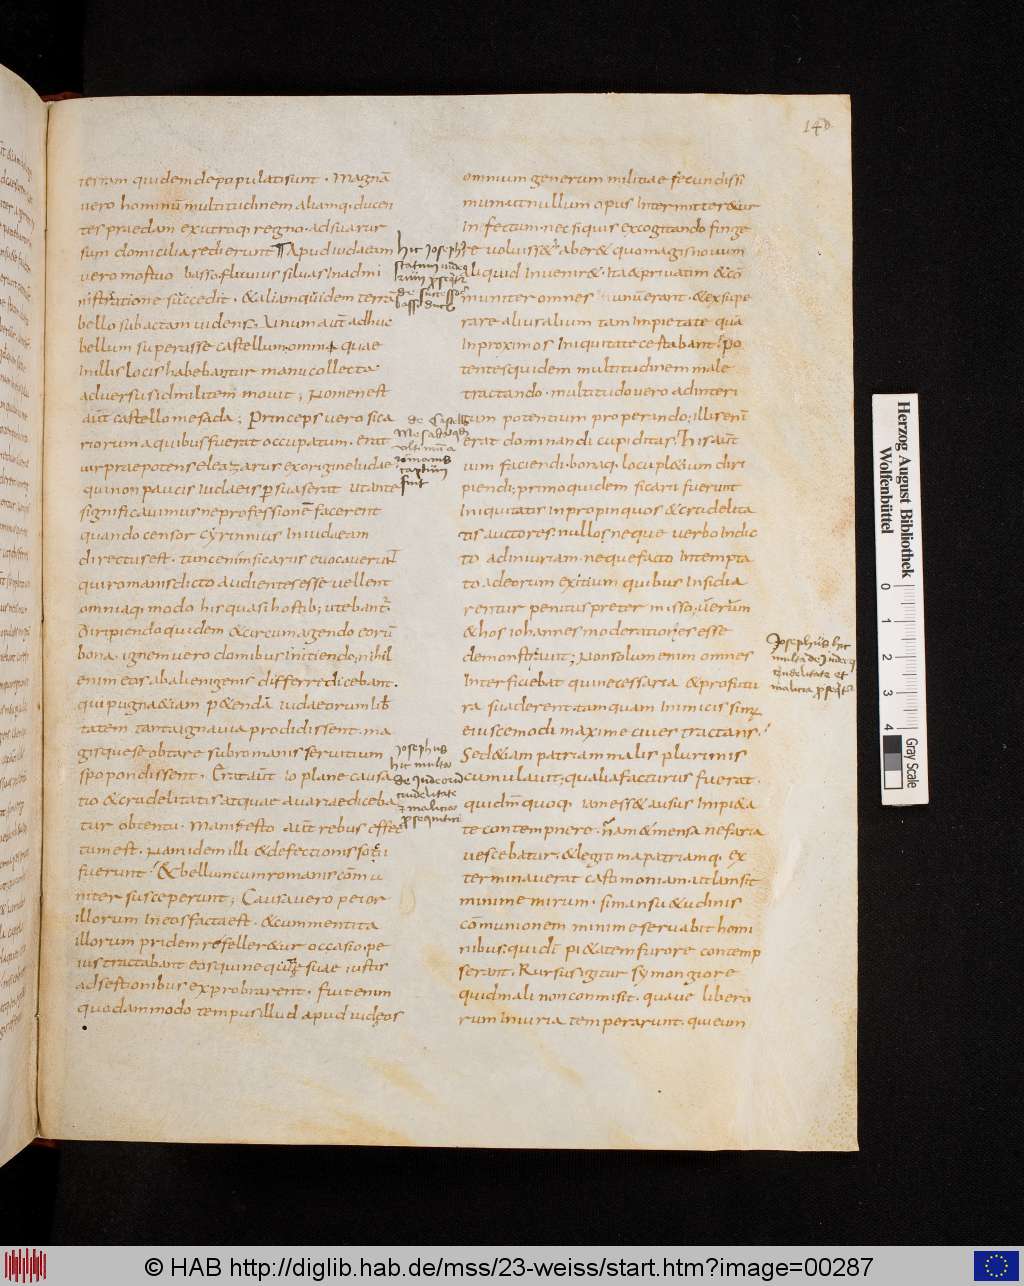 140
terram quidem depopulati sunt . Magnā
uero hominū multitudinem aliamq. ducen
tes praedam ex utroq; regno . ad sua rur
sum domicilia redierunt ¶ Apud iudaeam
uero mortuo basso . fluuius siluas In admi
nistratione succedit . & aliam quidem terrā
bello subactam uidens . Unum aut̄ adhuc
bellum superasse castellum . omni quae
In illis locis habebantur manu collecta
aduersus id militem mouit , Nomen est
aut̄ castello mesada ; Princeps uero sica
riorum a quibus fuerat occupatum . erat
uir praepotens eleazarus ex origine Iudae
qui non paucis iudaeis ꝑsuaserat ut ante
significauimus ne professionē facerent
quando censor cyrinnius In iudaeam
directus est . tunc enim sicariis euocauerat
qui romanis dicto audientes esse uellent
omniaq; modo his quasi hostib; utebant̄
diripiendo quidem & circumagendo eorū
bona . ignem uero domibus Initiendo ; nihil
enim eos ab alienigenis differre dicebant .
qui pugna & iam petendā iudaeorum lib̄
tatem tanta ignauia prodidissent . ma
gisque se obtare sub romanis seruitium
spopondissent . Erat aut̄ Io plane causa
tio & crudelitatis atquae auariae diceba
tur obtentu . Manifesto aut̄ rebus effec
tum est . Nam idem illi & defectionis socii
fuerunt & bellum cum romanis cōmu
niter susceperunt ; Causa uero peior
illorum In eos facta est . & cummentita
illorum pridem refeller&ur occasio . pe
ius tractabant eos qui nequitiae suae iustis
adsestionibus exprobrarent . Fuit enim
quodammodo tempus illud apud iudęos
hic Josephus
de successore
bassi duce
de Castello
Mesada
ultimum a
romanis
captum
fuit
Josephus
hic multa
de Iudeorum
crudelitate
& malicia
ꝑsequitur
omnium generum militiae fecundissi
mum ut nullum opus Intermitter&ur
Infectum . nec si quis excogitando finge
re voluiss& . aber& quo magis nouum
aliquid Inuenir& . Ita & priuatim & cō
muniter omnes
rare alius alium tam Impietate quā
In proximos Iniquitate certabant ; Po
tentes quidem multitudinem male
tractando . multitudo uero ad Interi
tum potentium properando ; illis enī
erat dominandi cupiditas . his aut̄
uim faciendi . bonaq; locupl&ium diri
piendi ; primo quidem sicarii fuerunt
Iniquitatis In propinquos & crudelita
tis auctores . nullos neque uerbo Indic
to ad Iniuriam . neque facto Intempta
to ad eorum exitium quibus Insidia
rentur penitus preter misso ; uerum
& hos iohannes moderationes esse
demonstrauit ; Non solum enim omnes
Interficiebat qui necessaria & profutu
ra suaderent . tamquam Inimicis
eiuscemodi maxime ciues tractans .
Sed & iam patriam malis plurimis
cumulauit ; qualia facturus fuerat .
qui dm̄ quoq; iam ess& ausus Impi&a
te contempnere . nam & mensa nefaria
uescebatur . & legitima patriamq; ex
terminauerat castimoniam . ut Iam sit
minime mirum . si mansu&udinis
cōmunionem minime seruabit homi
nibus . qui dī pi&atem furore contemp
serant . Rursus igitur symon giore
quid mali non conmisit . quaue libero
rum Iniuria temperarunt . qui eum
Josephus hic
multa de Iudeorum
crudelitate et
malicia ꝑsequitur
Herzog August Bibliothek
Wolfenbüttel
0 1 2 3 4
Gray Scale
© HAB http://diglib.hab.de/mss/23-weiss/start.htm?image=00287